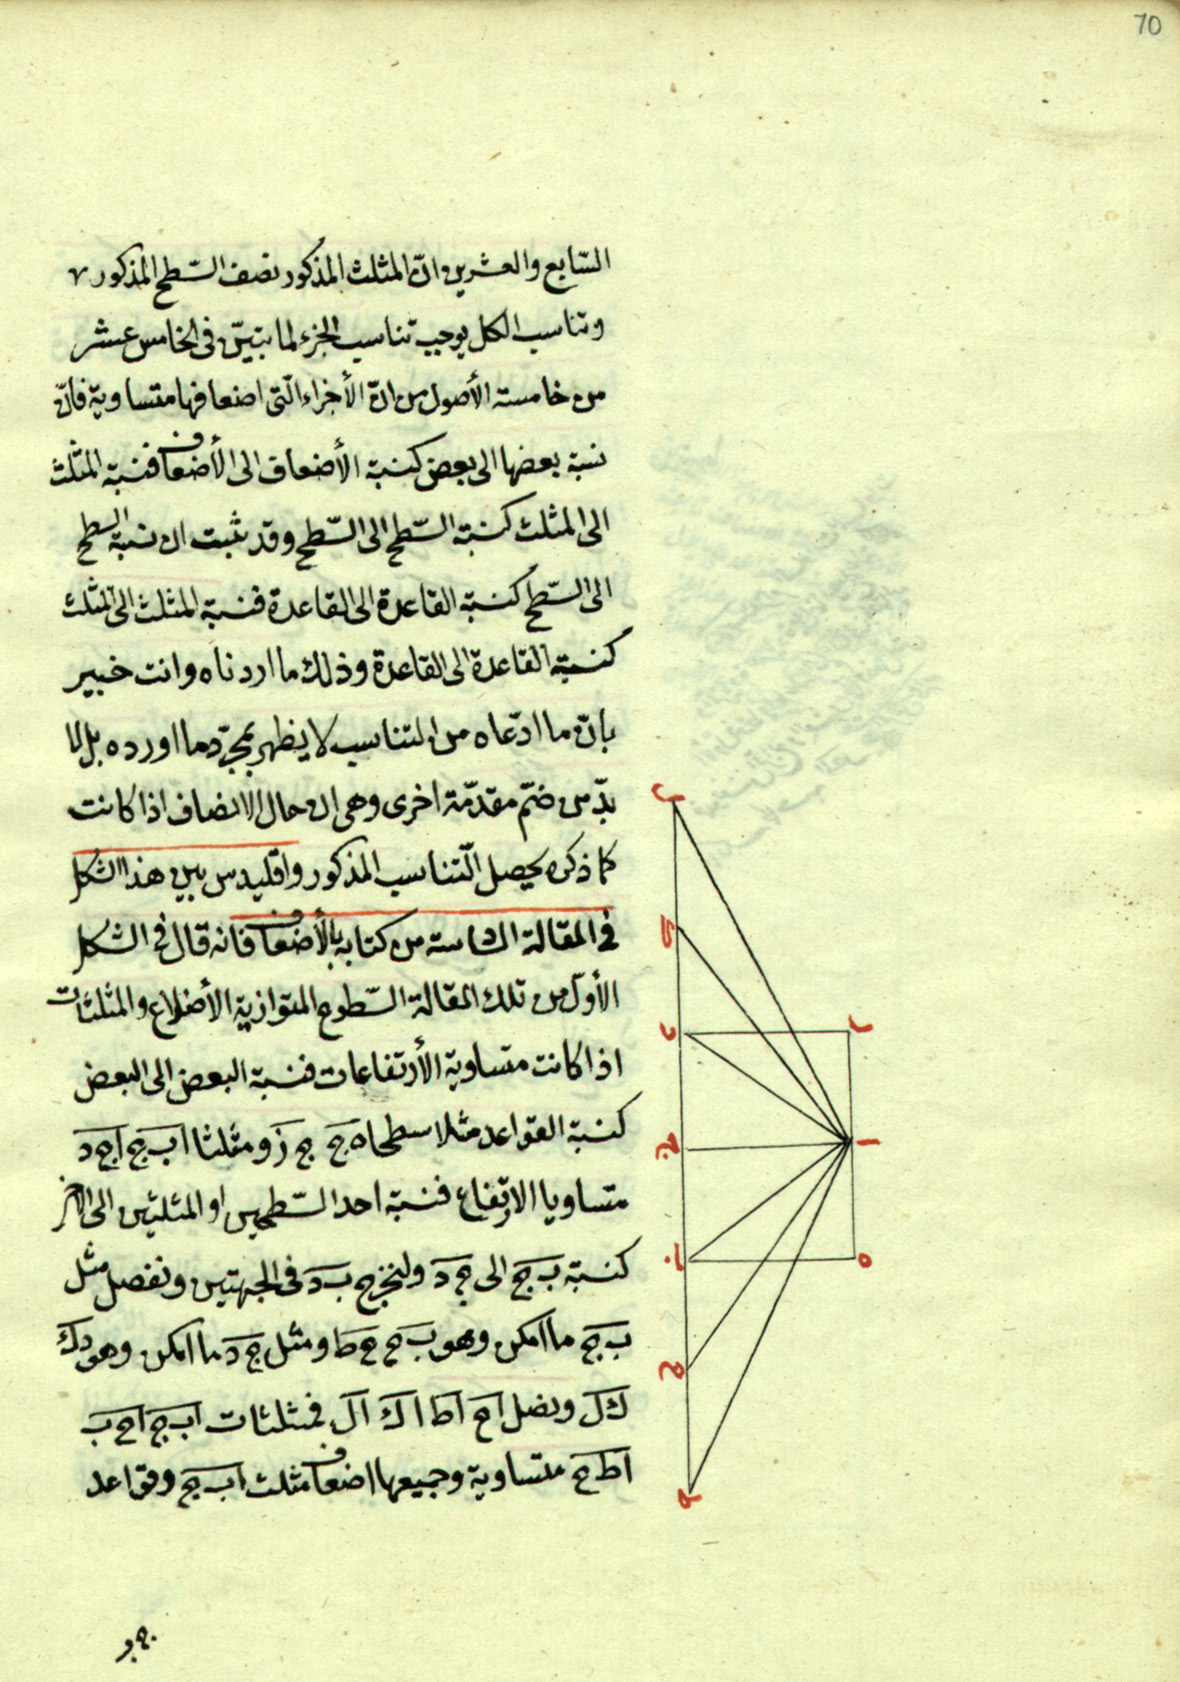 70
السّابع والعشرين انّ المثلث المذكور نصف السّطح المذكور
وتناسب الكل يوجب تناسب الجزء لما تبيّن فى الخامس عشر
من خامسة الأصول من انّ الأجزاء الّتى اضعافها متساوية فانّ
نسبة بعضها الى بعض كنسبة الأضعاف الى الأضعاف فنسبة المثلث
الى المثلث كنسبة السّطح الى السّطح وقد ثبت ان نسبة السطح
الى السّطح كنسبة القاعدة الى القاعدة فنسبة المثلث الى المثلث
كنسبة القاعدة الى القاعدة وذلك ما اردناه وانت خبير
بانّ ما ادّعاه من التناسب لا يظهر بمجرّد ما اورده بل لا
بدّ من ضمّ مقدّمة اخرى وهى ان حال الانصاف اذا كانت
كما ذكره يحصل التّناسب المذكور واقليدس بين هذا الشكل
فى المقالة السادسة من كتابه بالأضعاف فانه قال فى الشكل
الأوّل من تلك المقالة السّطوح المتوازية الأضلاع والمثلثات
اذا كانت متساوية الأرتفاعات فنسبة البعض الى البعض
كنسبة القواعد مثلا سطحا ه ج ج ز ومثلثا ا ب ج ا ج د
متساويا الارتفاع فنسبة احد السّطحين او المثلثين الى الاخر
كنسبة ب ج الى ج د ولنخرج ب د فى الجهتين ونفصل مثل
ب ج ما امكن وهو ب ح ح ط ومثل ج د ما امكن وهو د ك
ك ل ونصل ا ح ا ط ا ك ا ل فمثلثات ا ب ج ا ح ب
ا ط ح متساوية وجميعها اضعاف مثلث ا ب ج وقواعد
ل
ك
د
ر
ج
ا
ب
ه
ح
ط